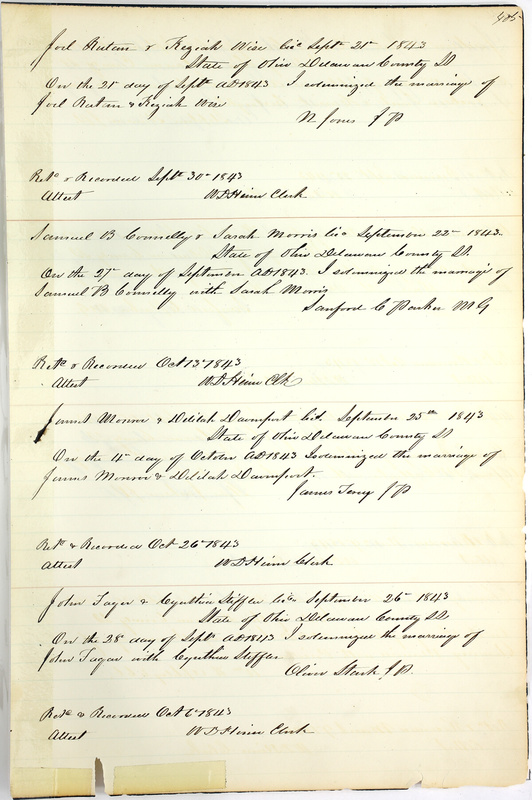 405
Joel Rutan & Keziah Wise Lic Sept 21st 1843
State of Ohio Delaware County SS
On the 21st day of Sept AD 1843 I solemnized the marriage of
Joel Rutan & Keziah Wise
N Jones J P
Retd & Recorded Sept 30th 1843
Attest W D Heim Clerk
Samuel B Connelly & Sarah Morris Lic September 22nd 1843
State of Ohio Delaware County SS.
On the 27th day of September AD 1843 I solemnized the marriage of
Samuel B Connelly with Sarah Morris
Sanford C Parker M G
Retd & Recorded Oct 13th 1843
Attest W D Heim Clk
James Monroe & Delilah Davenport Lic. September 25th 1843
State of Ohio Delaware County SS
On the 4th day of October AD 1843 I solemnized the marriage of
James Monroe & Delilah Davenport.
James J P
Retd & Recorded Oct 26th 1843
Attest W D Heim Clerk
John & Cynthia Stiffler Lic September 26th 1843
State of Ohio Delaware County SS.
On the 28th day of Sept AD 1843 I solemnized the marriage of
John with Cynthia Stiffler
Oliver Stark J P.
Retd & Recorded Oct 6th 1843
Attest W D Heim Clerk